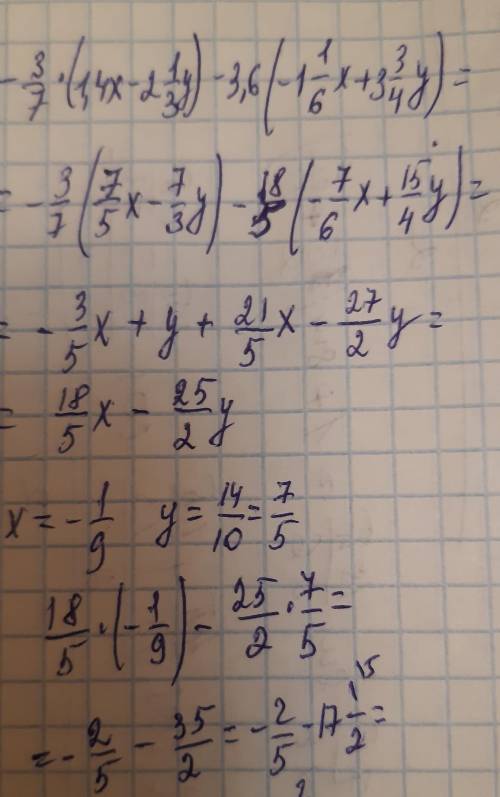 - 3/7 · (1,4x - 2 1/3 y) - 3,6 (-1 1/6 x + 3 3/4 y) =
= - 3/7 (7/5 x - 7/3 y) - 18/5 (- 7/6 x + 15/4 y) =
= - 3/5 x + y + 21/5 x - 27/2 y =
= 18/5 x - 25/2 y
x = - 1/9 y = 14/10 = 7/5
18/5 · (- 1/9) - 25/2 · 7/5 =
= - 2/5 - 35/2 = - 2/5 - 17 1/2 =